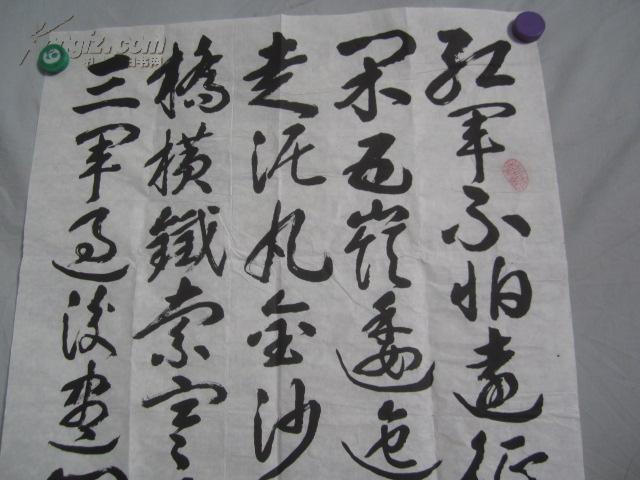 红军不怕远征
闲五岭逶迤
走泥丸金沙
桥横铁索寒
三军过后尽开